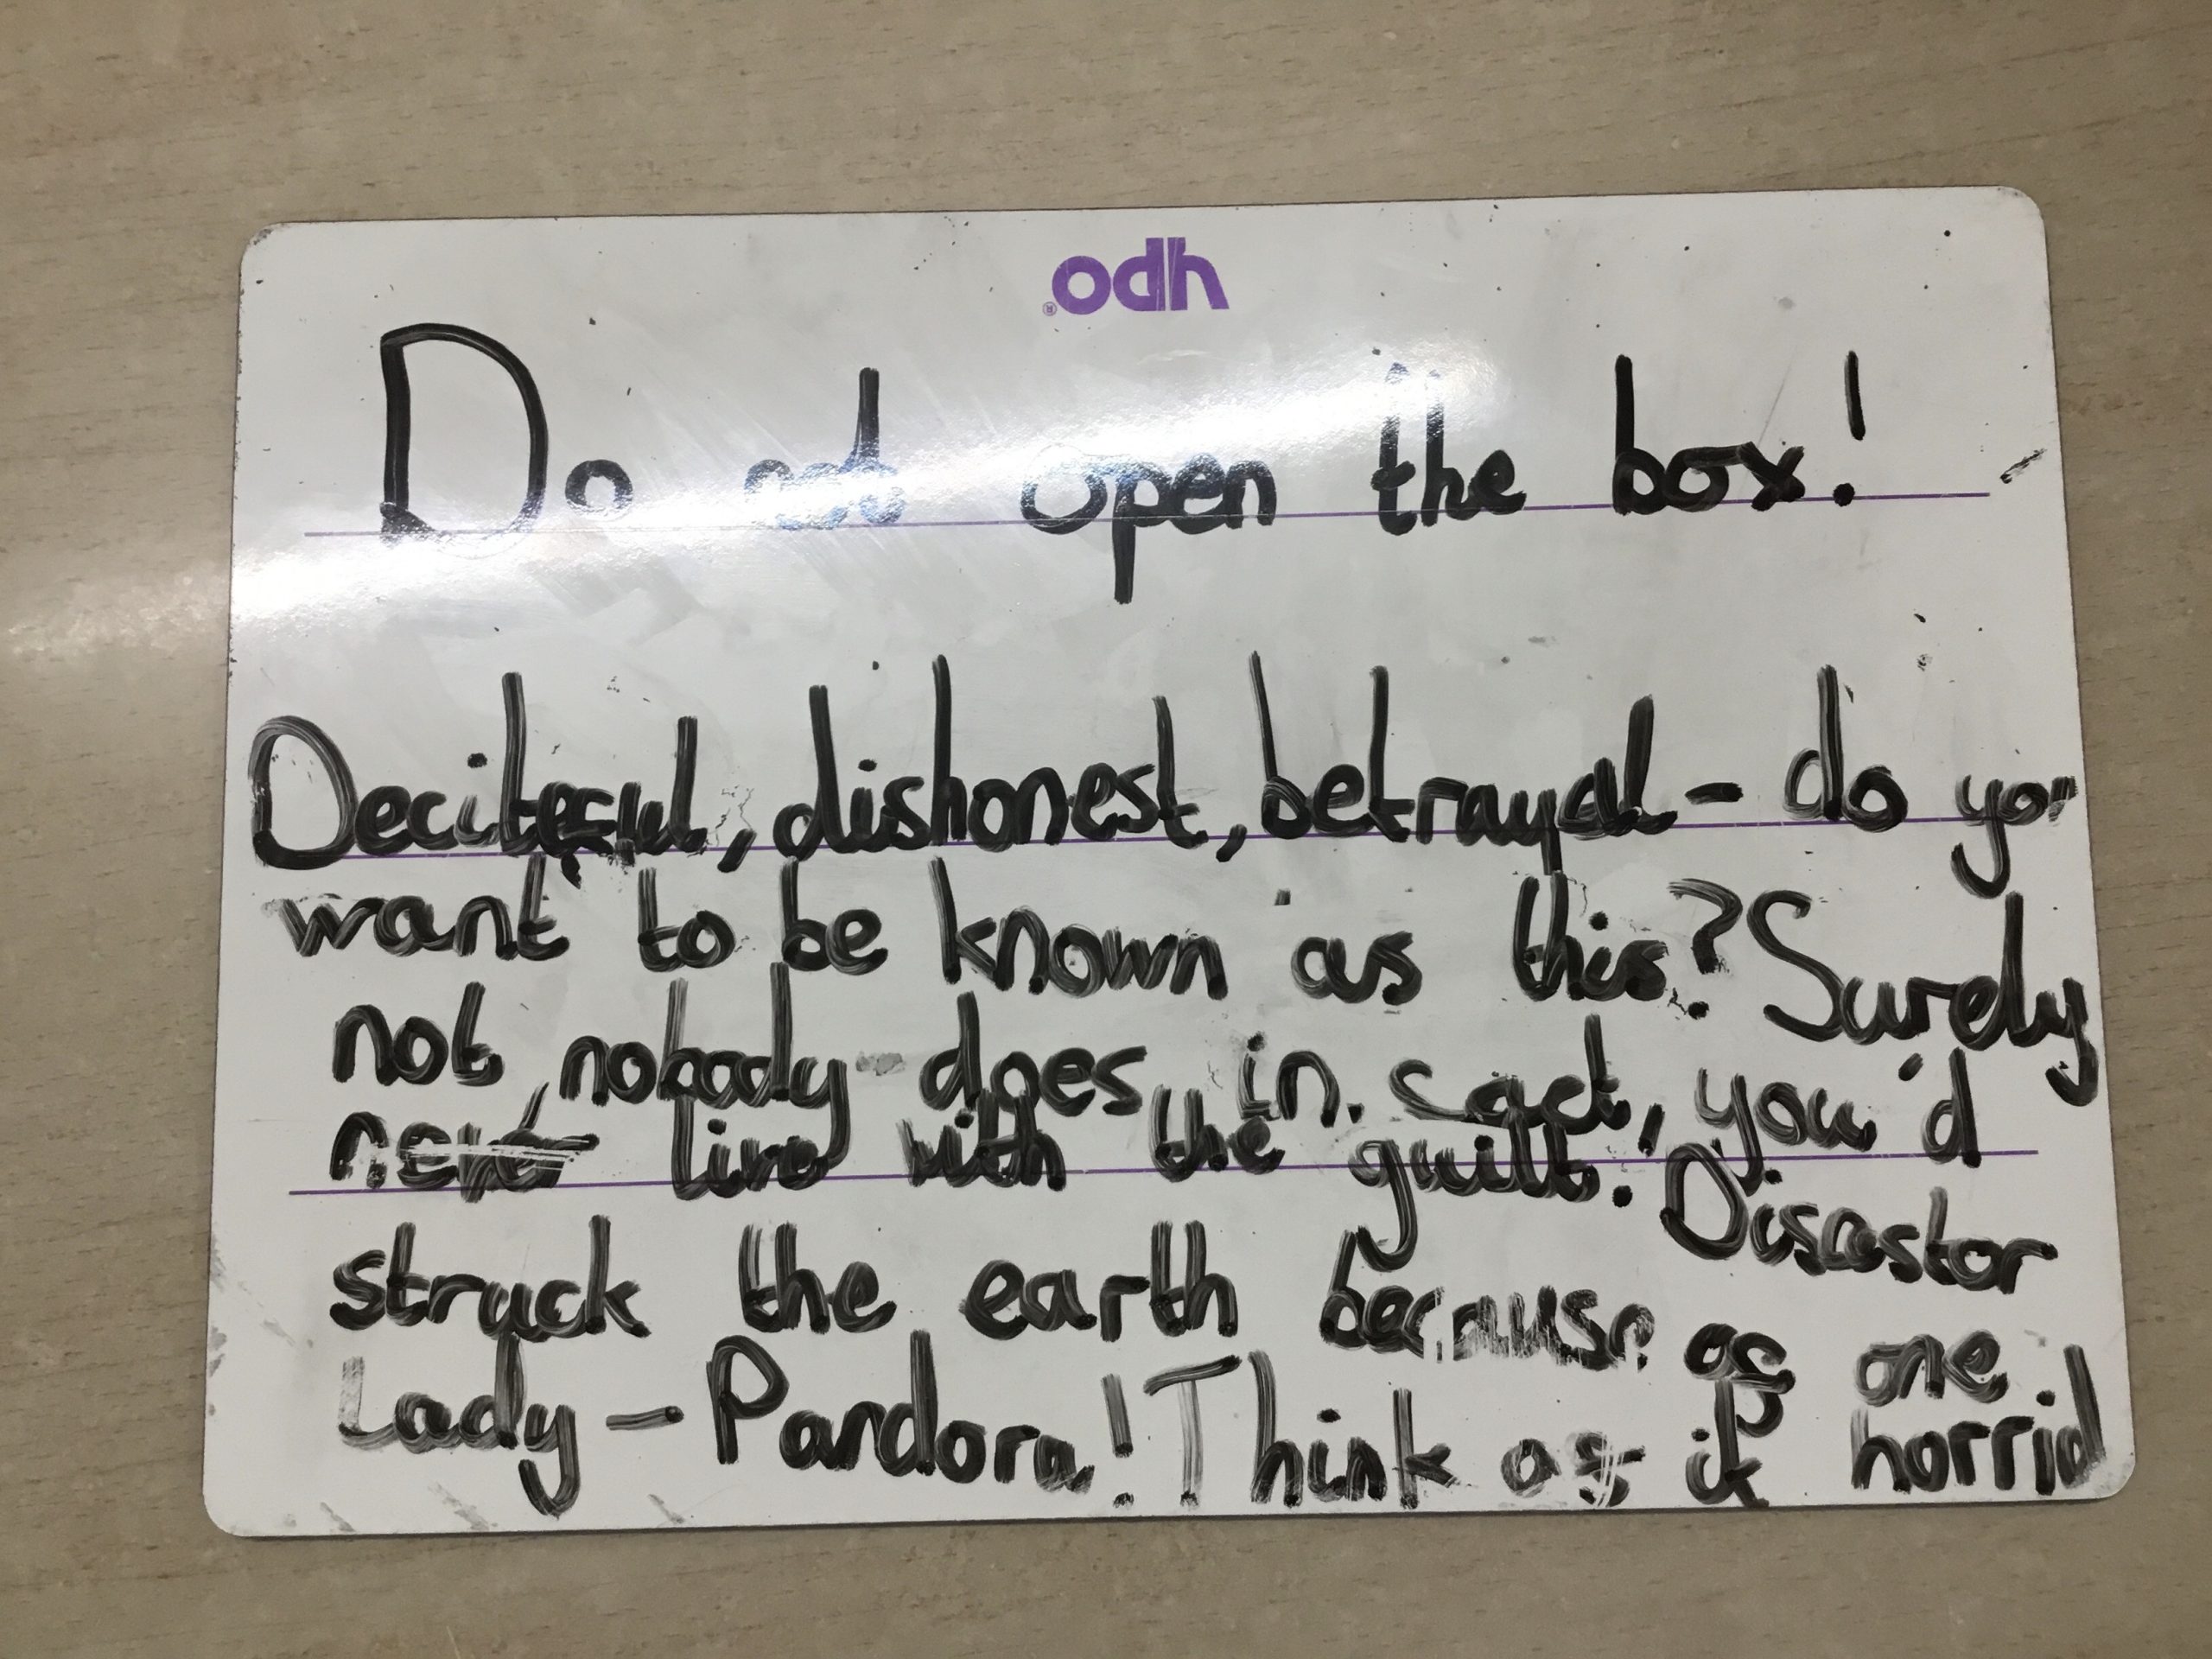 odh
Do not open the box!
Deciteful, dishonest, betrayal - do you
want to be known as this? Surely
not, nobody does, in fact, you'd
never live with the guilt. Disastor
struck the earth because of one
Lady - Pandora! Think of it horrid